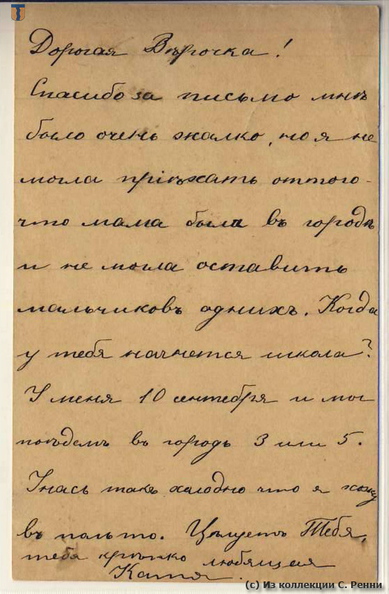 Дорогая Вѣрочка!
Спасибо за письмо мнѣ
было очень жалко, но я не
могла пріѣхать оттого-
что мама была въ городѣ
и не могла оставить
мальчиковъ однихъ. Когда
у тебя начнется школа?
У меня 10 сентября и мы
поѣдемъ въ городъ 3 или 5.
Унасъ такъ халодно что я хожу
въ пальто. Цѣлуетъ Тебя,
тебя крѣпко любящая
Катя.
(c) Из коллекции С. Ренни